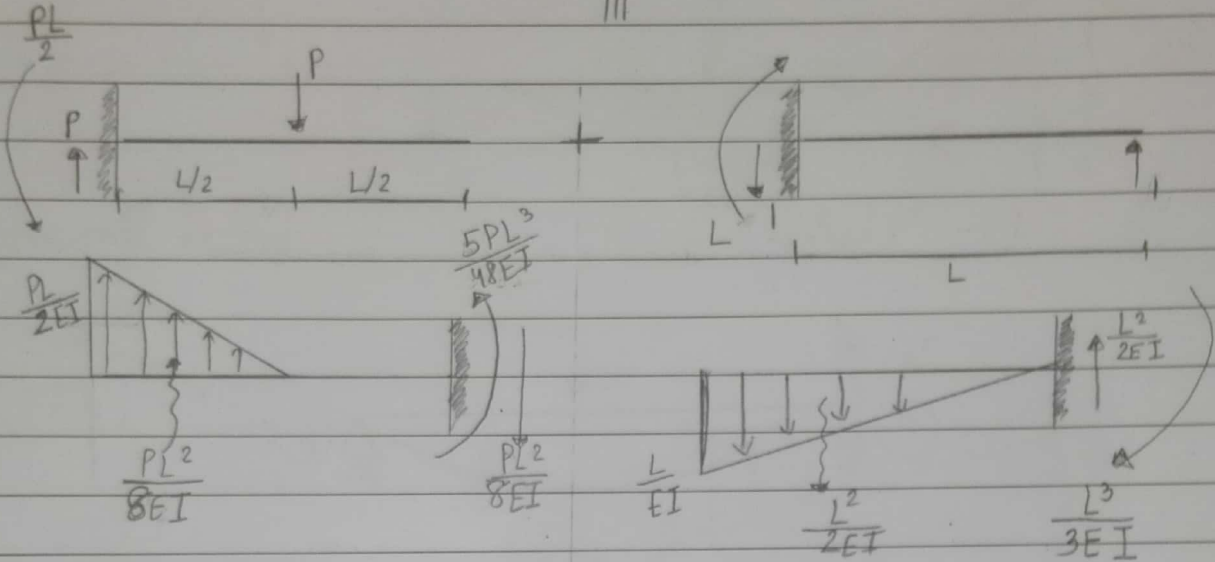 PL/2
P
P
L/2 L/2
+
L 1
1
L
PL/2EI
5PL³/48EI
PL²/8EI
PL²/8EI
L/EI
L²/2EI
L²/2EI
L³/3EI